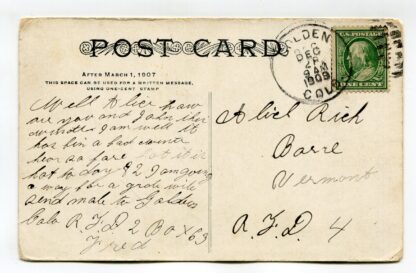 POST CARD
AFTER MARCH 1, 1907
THIS SPACE CAN BE USED FOR A WRITTEN MESSAGE,
USING ONE-CENT STAMP
Well Alice how
are you and John this
winter I am well it
has bin a bad
hear so fare but it is
hot to day 92 I am going
a way for a
send male to Golden
Colo R.F.D 2 Box 63
Fred
GOLDEN
DEC
1909
COLO
ONE CENT
Alice Rich
Barre
Vermont
R.F.D. 4